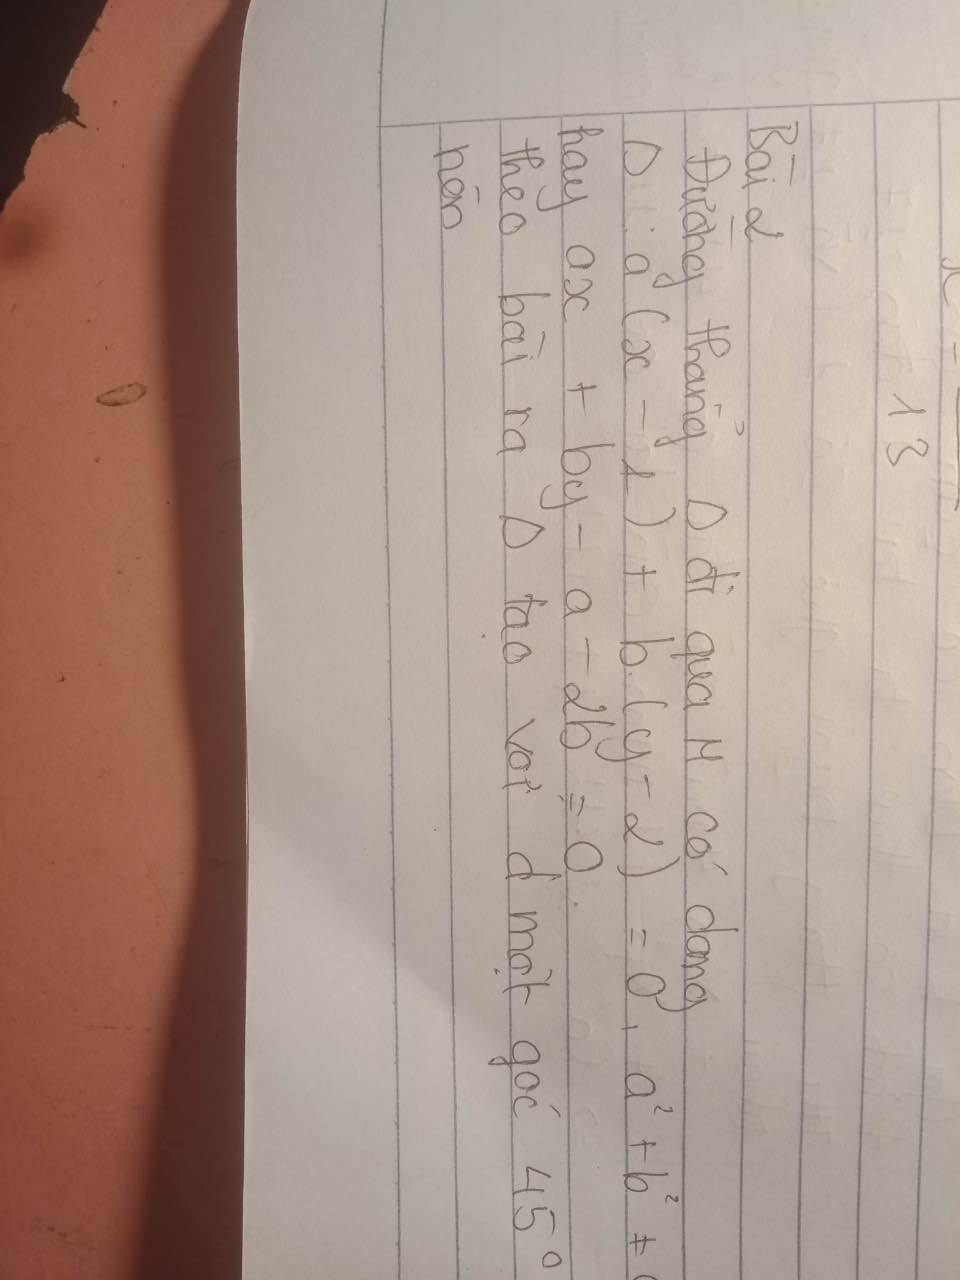 13
Bài 2
Đường thẳng Δ đi qua M có dạng
Δ : a (x - 1) + b.(y - 2) = 0, a² + b² ≠
hay ax + by - a - 2b = 0.
theo bài ra Δ tạo với d một góc 45°
nên